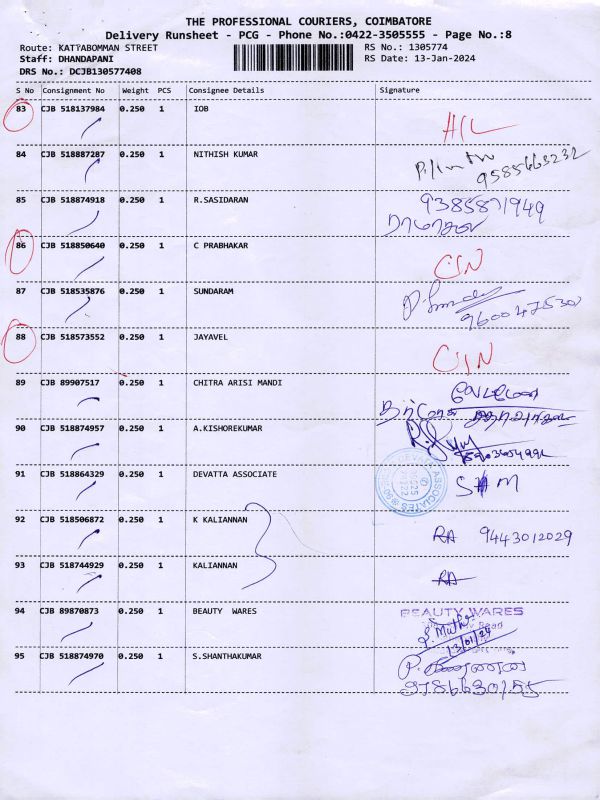 THE PROFESSIONAL COURIERS, COIMBATORE
Delivery Runsheet - PCG - Phone No.:0422-3505555 - Page No.:8
Route: KATTABOMMAN STREET RS No.: 1305774
Staff: DHANDAPANI RS Date: 13-Jan-2024
DRS No.: DCJB130577408
S No Consignment No Weight PCS Consignee Details Signature
83 CJB 518137984 0.250 1 IOB
84 CJB 518887287 0.250 1 NITHISH KUMAR
9585663232
85 CJB 518874918 0.250 1 R.SASIDARAN 9385871949
86 CJB 518850640 0.250 1 C PRABHAKAR
87 CJB 518535876 0.250 1 SUNDARAM
88 CJB 518573552 0.250 1 JAYAVEL
89 CJB 89907517 0.250 1 CHITRA ARISI MANDI
90 CJB 518874957 0.250 1 A.KISHOREKUMAR
91 CJB 518864329 0.250 1 DEVATTA ASSOCIATE
92 CJB 518506872 0.250 1 K KALIANNAN RA 9443012029
93 CJB 518744929 0.250 1 KALIANNAN RA
94 CJB 89870873 0.250 1 BEAUTY WARES BEAUTY WARES
13/01/24
95 CJB 518874970 0.250 1 S.SHANTHAKUMAR